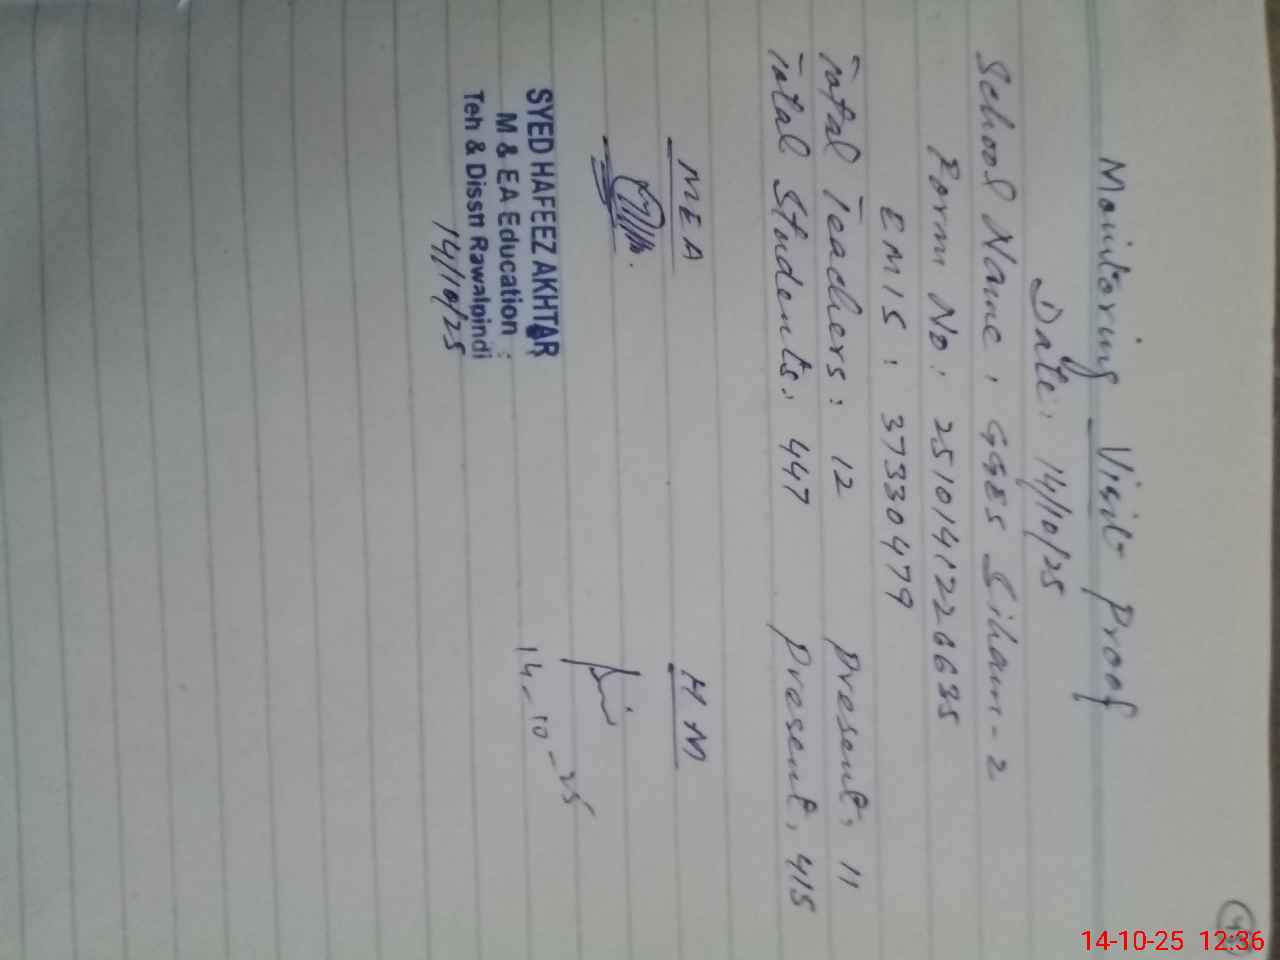 Monitoring Visit Proof
Date: 14/10/25
School Name: GGES Siham-2
Form No: 2510141226635
EMIS: 37330479
Total Teachers: 12 Present: 11
Total Students: 447 Present: 415
MEA HM
SYED HAFEEZ AKHTAR
M & EA Education
Teh & Dissn Rawalpindi
14/10/25
14-10-25
14-10-25 12:36